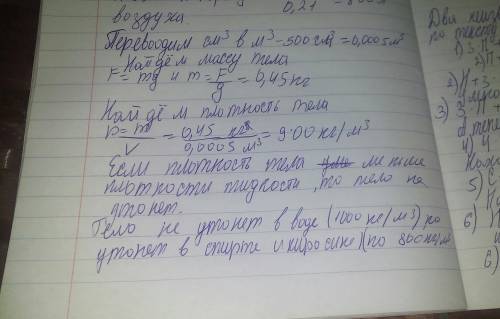 воздуха. 0,21
Переводим см³ в м³ - 500 см³ = 0,0005 м³
Найдём массу тела
F = mg и m = F/g = 0,45 кг
Найдём плотность тела
p = m/V = 0,45 кг / 0,0005 м³ = 900 кг/м³
Если плотность тела меньше
плотности жидкости, то тело не
утонет.
Тело не утонет в воде (1000 кг/м³) но
утонет в спирте и керосине (по 800 кг/м
Два
по тексту
1) 3.
2)
3) 3
4) 4.
5)
6)
6)